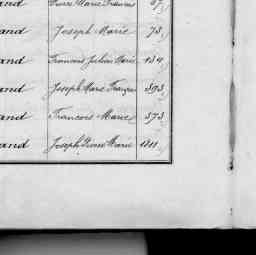 and Pierre Marie Francois 67
and Joseph Marie 73
and Francois Julien Marie 134
and Joseph Marie François 393
and Francois Marie 573
and Joseph Pierre Marie 1211